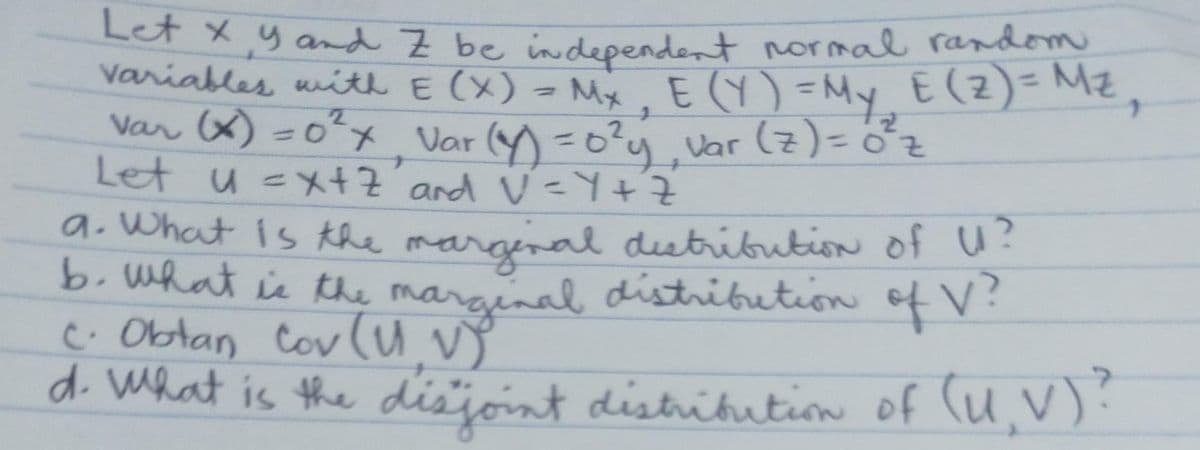 Let x, y and Z be independent normal random
variables with E (X) = Mx, E (Y) = My, E (Z) = Mz,
Var (X) = σ²x, Var (Y) = σ²y, Var (Z) = σ²z
Let u = x+Z and V = Y + Z
a. What is the marginal distribution of U?
b. What is the marginal distribution of V?
c. Obtan Cov (U, V)
d. What is the disjoint distribution of (U, V)?